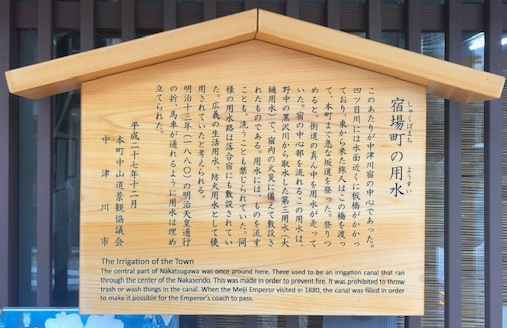 宿場町の用水
しゅくばまち
ようすい
このあたりが中津川宿の中心であった。
四ツ目川には水面近くに板橋がかかっ
ており、東から来た旅人はこの橋を渡っ
て、本町まで急な坂道を登った。登りつ
めると、街道の真ん中を用水が走って
いた。宿の中心部を流れるこの用水は、
野中の黒沢川から取水した第三用水(大
樋用水)で、宿内の火災に備えて敷設さ
れたものである。用水には、ものを流す
ことも、洗うことも禁じられていた。同
様の用水路は落合宿にも敷設されてい
た。広義の生活用水、防火用水として使
用されていたと考えられる。
明治十三年(一八八〇)の明治天皇通行
の折、馬車が通れるように用水は埋め
立てられた。
平成二十七年十二月
本町中山道景観協議会
中津川市
The Irrigation of the Town
The central part of Nakatsugawa was once around here. There used to be an irrigation canal that ran
through the center of the Nakasendo. This was made in order to prevent fire. It was prohibited to throw
trash or wash things in the canal. When the Meiji Emperor visited in 1880, the canal was filled in order
to make it possible for the Emperor's coach to pass.